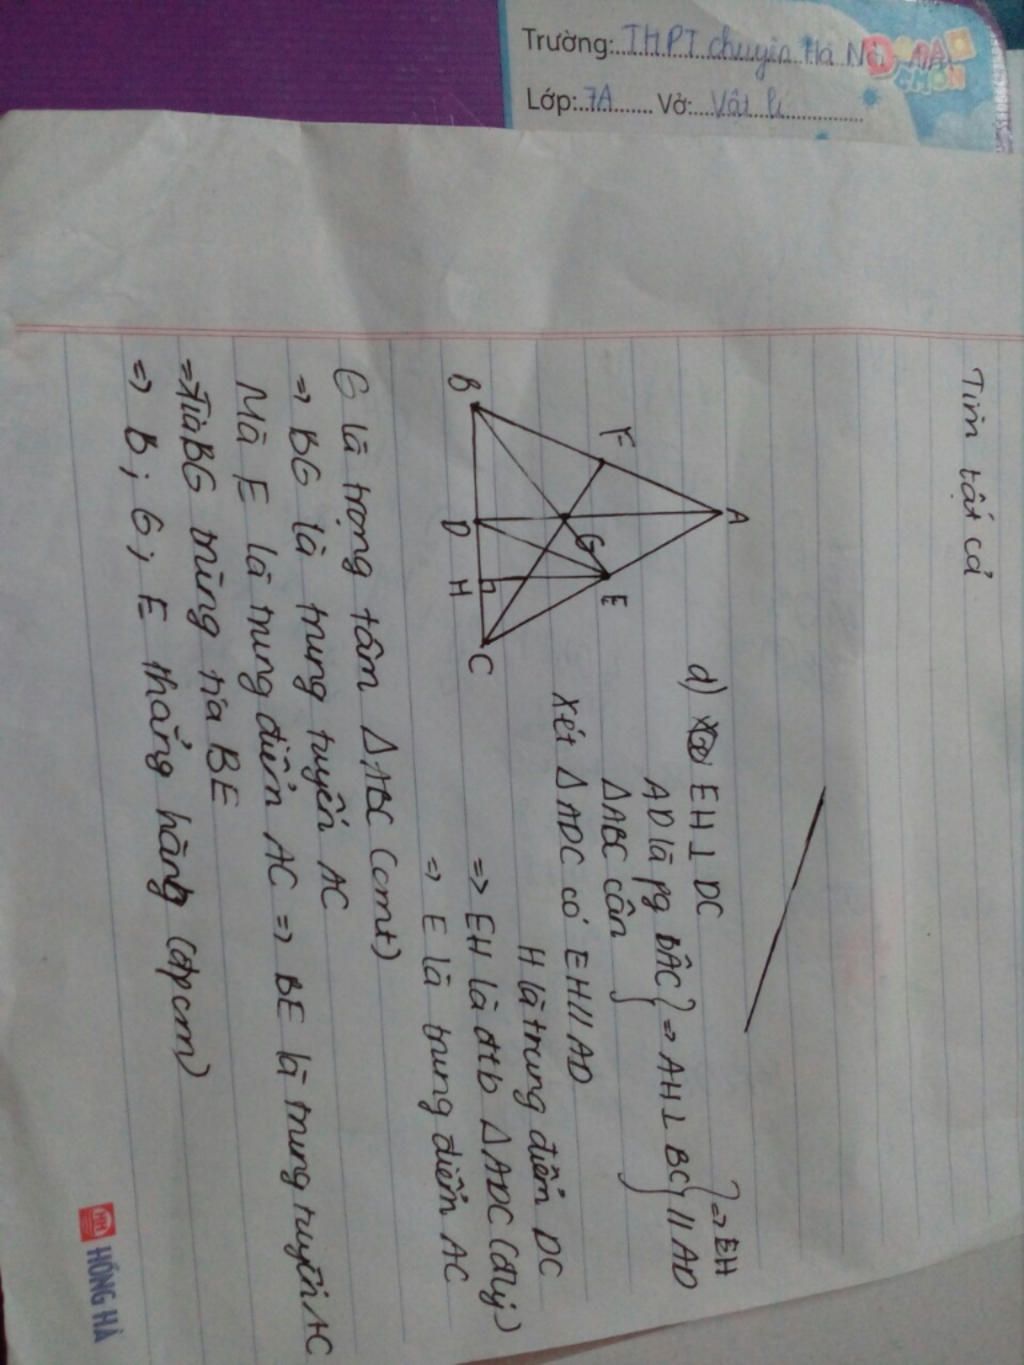 Trường: THPT chuyên Hà Nội
Lớp: 7A Vở: Vật lí
Tìm tất cả
d) EH ⊥ DC
AD là pg BÂC } => AH ⊥ BC } => EH // AD
ΔABC cân
Xét ΔADC có EH // AD
H là trung điểm DC
=> EH là đtb ΔADC (đlý)
=> E là trung điểm AC
A
F
E
G
B
D
H
C
G là trọng tâm ΔABC (cmt)
=> BG là trung tuyến AC
Mà E là trung điểm AC => BE là trung tuyến AC
=> Tia BG trùng tia BE
=> B; G; E thẳng hàng (đpcm)
HH HỒNG HÀ